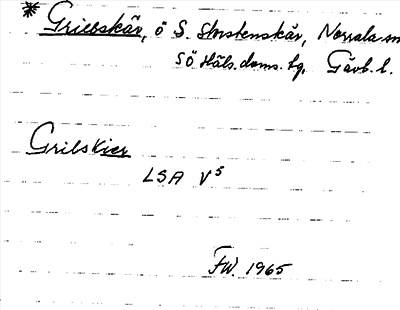 * Grillskär, ö S. Storstenskär, Norrala sn
SÖ Häls. doms. tg. Gävl. l.
Grilskier
LSA V5
FW. 1965